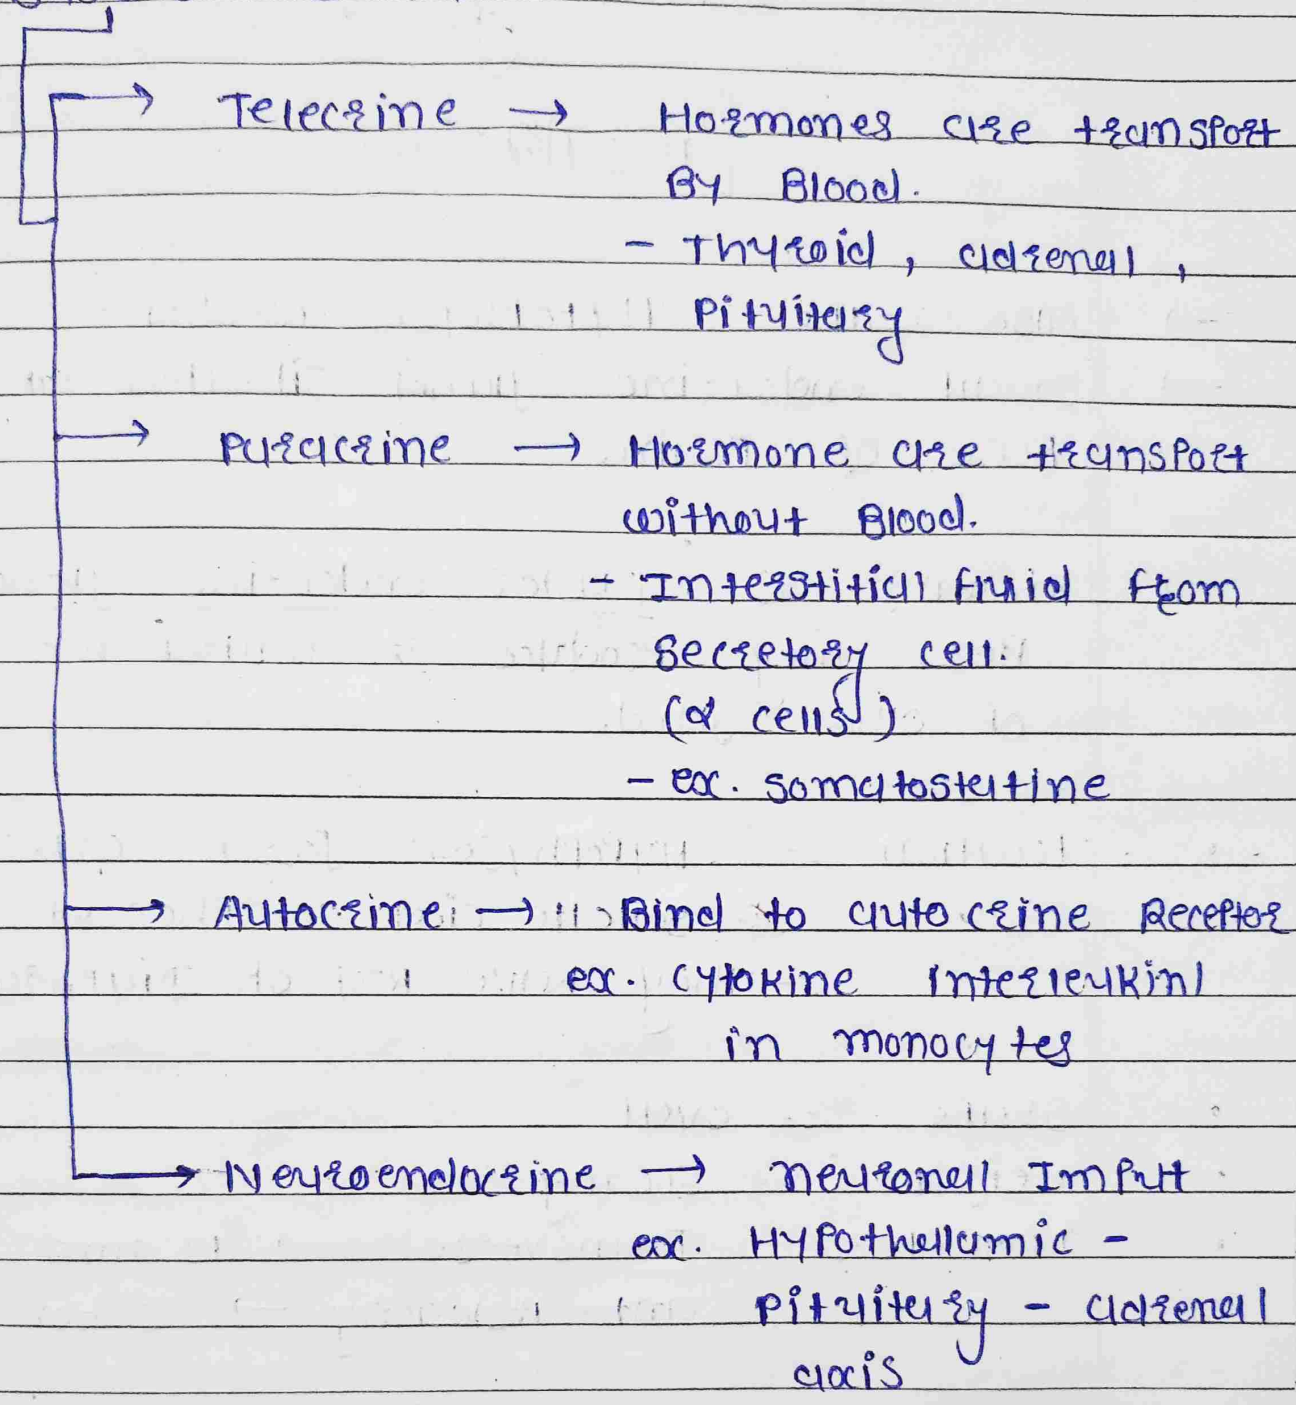 Telecrine → Hormones are transport
By Blood.
- Thyroid, adrenal,
Pituitary
Paracrine → Hormone are transport
without Blood.
- Interstitial fluid from
secretory cell.
(α cells)
- ex. somatostatine
Autocrine → Bind to auto crine Receptor
ex. cytokine interleukin1
in monocytes
Neuroendocrine → neuronal Imput
ex. Hypothellamic -
pituitary - adrenal
axis